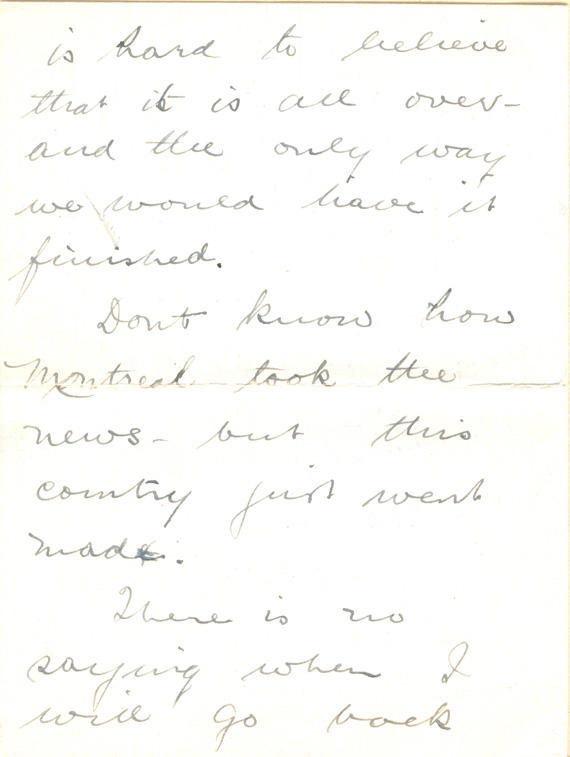 is hard to believe
that it is all over -
and the only way
we would have it
finished.
Dont know how
Montreal took the
news - but this
country just went
mad.
There is no
saying when I
will go back